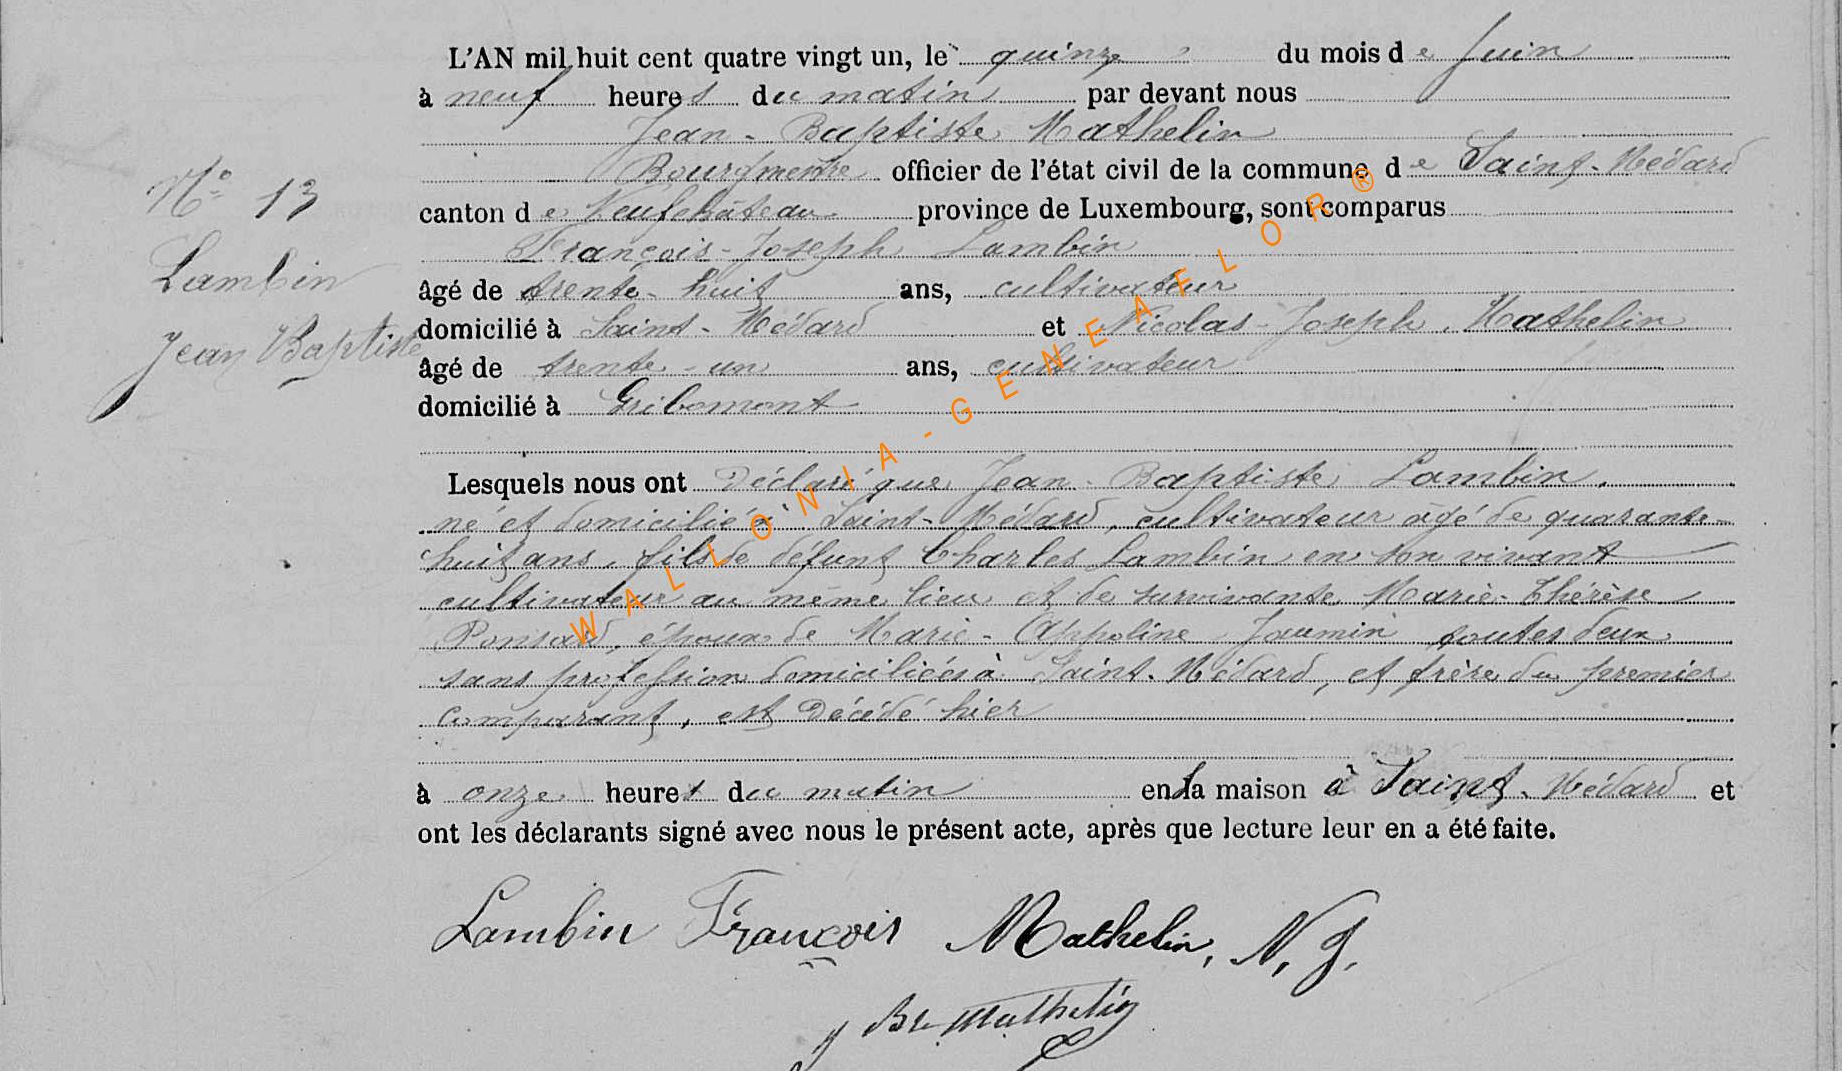 L'AN mil huit cent quatre vingt un, le quinze du mois de Juin
à neuf heures du matin par devant nous
Jean-Baptiste Mathelin
Bourgmestre officier de l'état civil de la commune de Saint-Médard
canton de Neufchâteau province de Luxembourg, sont comparus
François-Joseph Lambin
âgé de trente-huit ans, cultivateur
domicilié à Saint-Médard et Nicolas-Joseph Mathelin
âgé de trente-un ans, cultivateur
domicilié à Gribomont
Lesquels nous ont Déclaré que Jean-Baptiste Lambin,
né et domicilié à Saint-Médard, cultivateur âgé de quarante-
huit ans, fils de défunt Charles Lambin en son vivant
cultivateur au même lieu et de survivante Marie-Thérèse
Ponsard, époux de Marie-Appoline Jaumin toutes deux
sans profession domiciliées à Saint-Médard, et frère du premier
comparant, est Décédé hier
à onze heures du matin en la maison à Saint-Médard et
ont les déclarants signé avec nous le présent acte, après que lecture leur en a été faite.
Lambin François Mathelin, N, J,
J Bte Mathelin
N° 13
Lambin
Jean Baptiste
WALLONIA-GENEAFLOR®